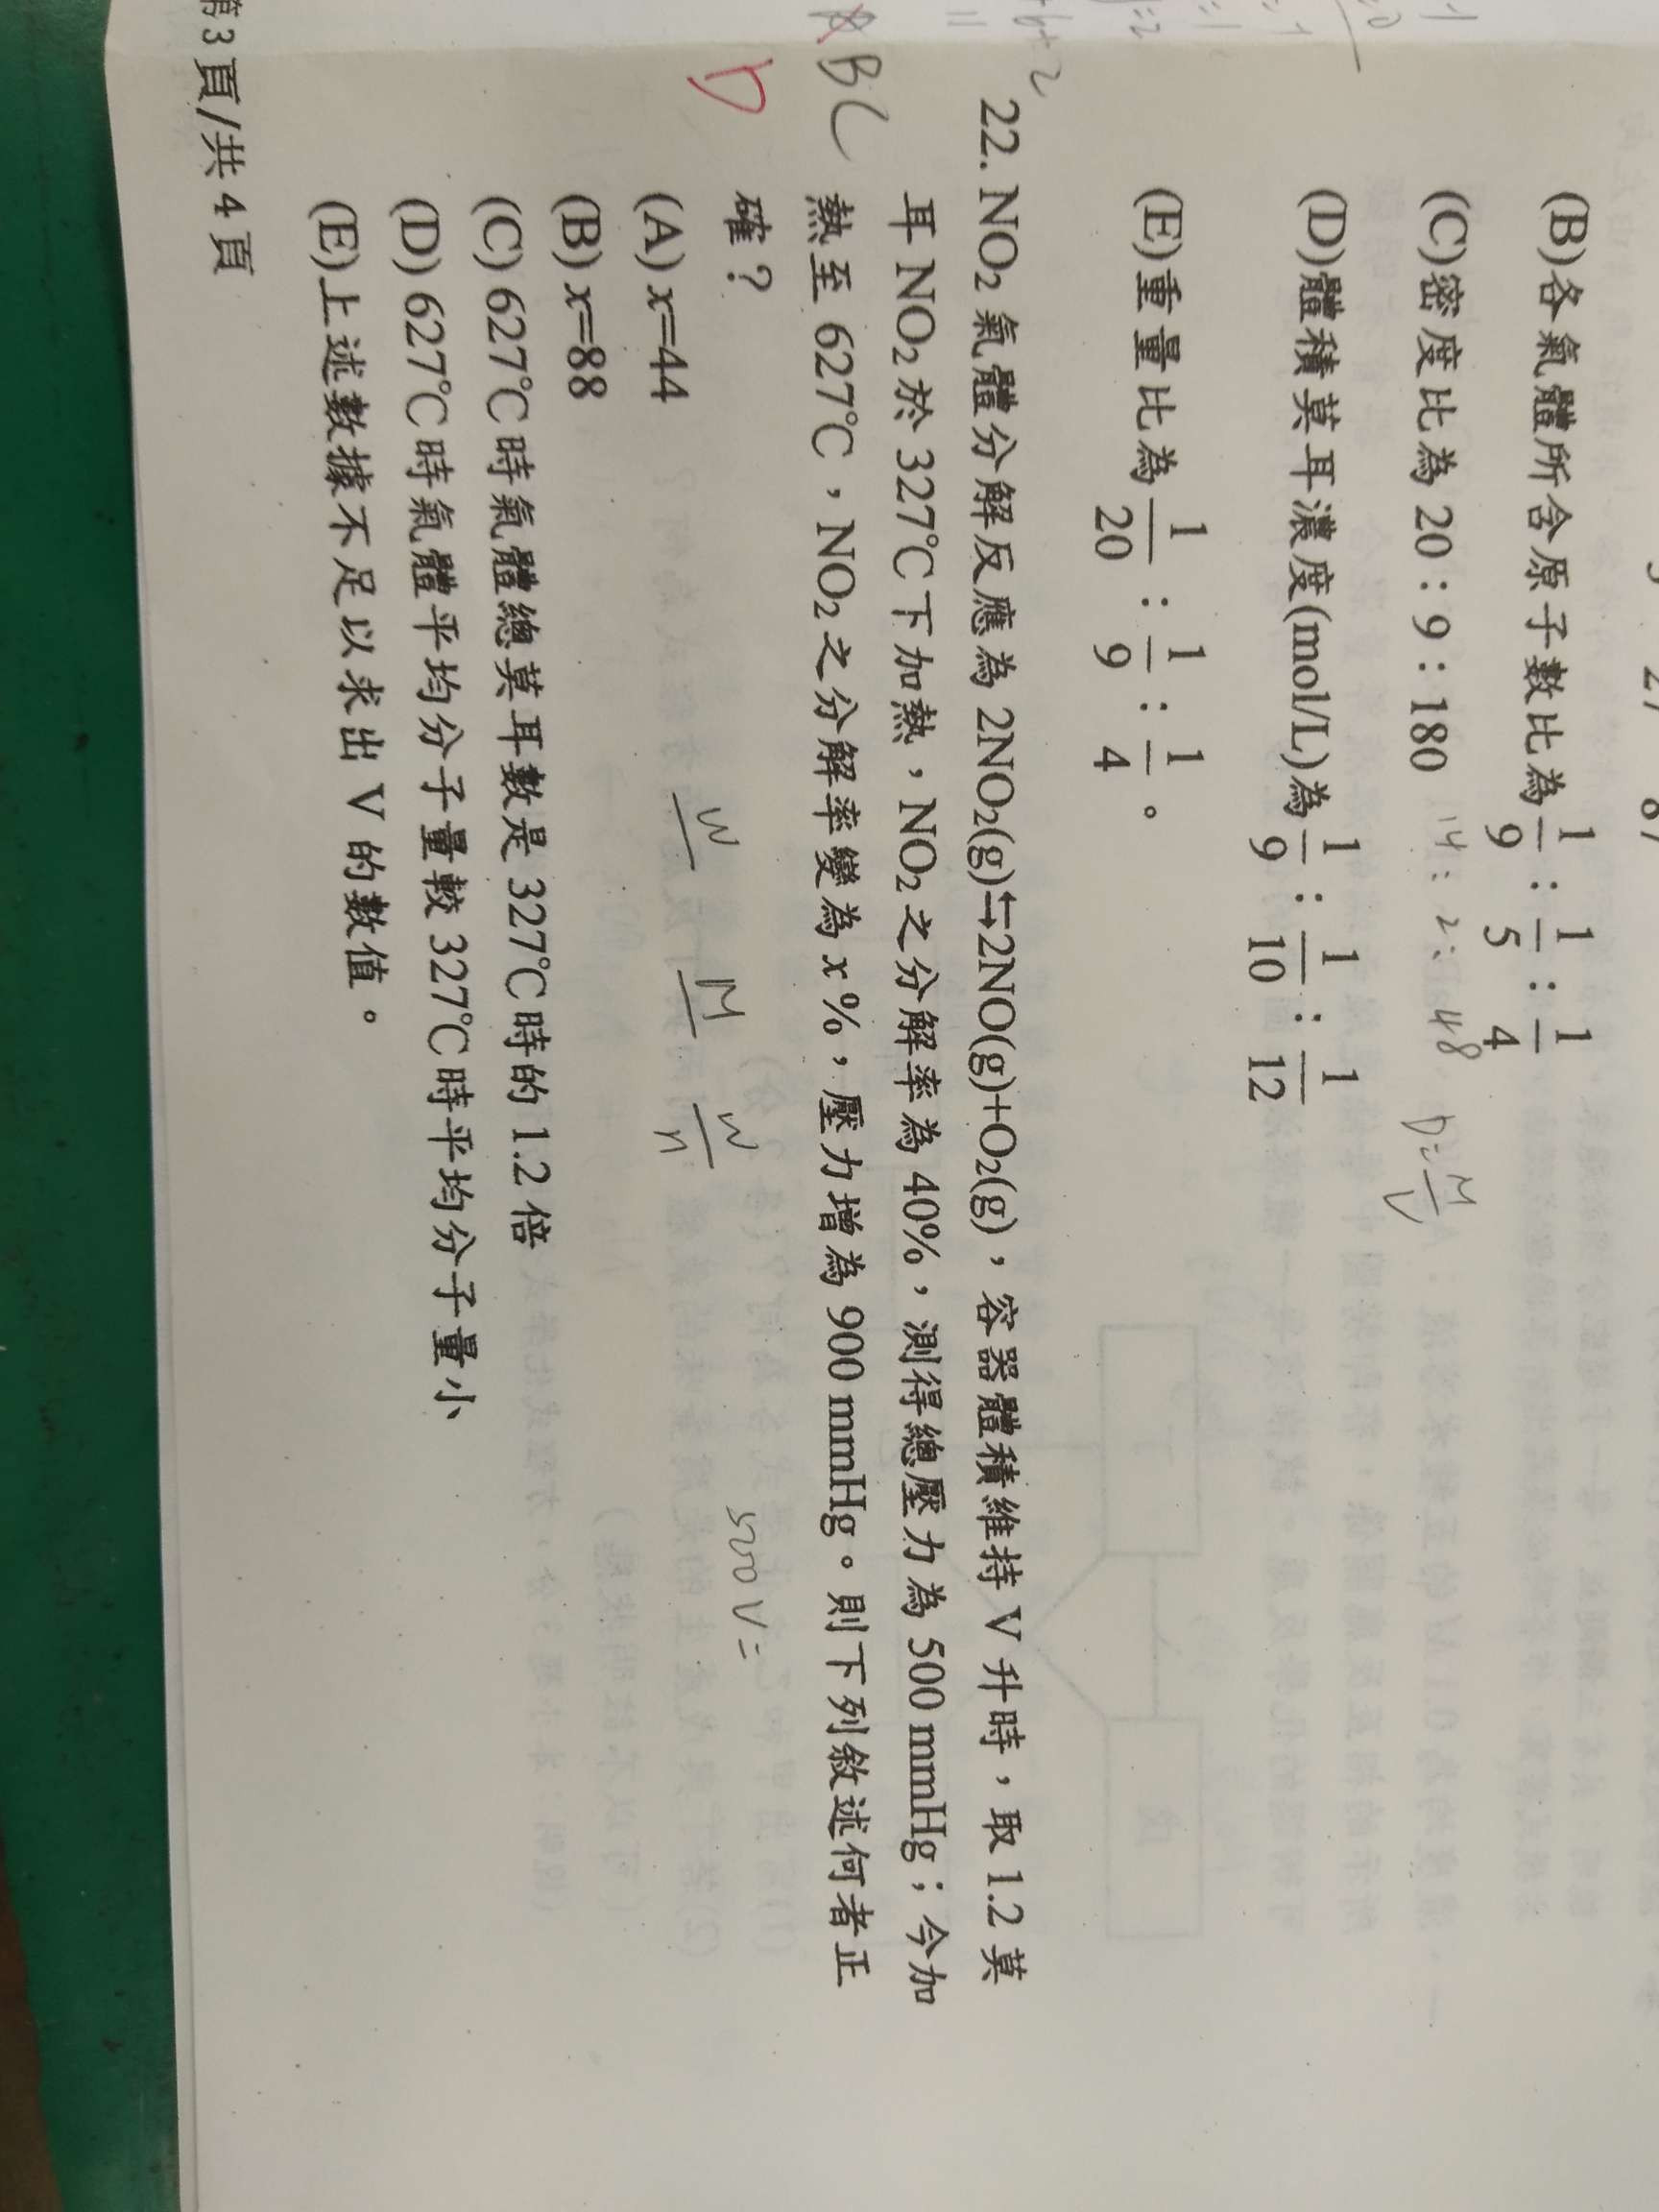 (B)各氣體所含原子數比為 1/9 : 1/5 : 1/4
(C)密度比為 20：9：180
14：2：
48
D=M/V
(D)體積莫耳濃度(mol/L)為 1/9 : 1/10 : 1/12
(E)重量比為 1/20 : 1/9 : 1/4 。
22. NO₂ 氣體分解反應為 2NO₂(g)⇆2NO(g)+O₂(g)，容器體積維持 V 升時，取 1.2 莫
耳 NO₂ 於 327℃下加熱，NO₂ 之分解率為 40%，測得總壓力為 500 mmHg；今加
熱至 627℃，NO₂ 之分解率變為 x%，壓力增為 900 mmHg。則下列敘述何者正
確？
BC
D
500 V =
W M W/n
(A) x=44
(B) x=88
(C) 627℃時氣體總莫耳數是 327℃時的 1.2 倍
(D) 627℃時氣體平均分子量較 327℃時平均分子量小
(E)上述數據不足以求出 V 的數值。
第 3 頁/共 4 頁